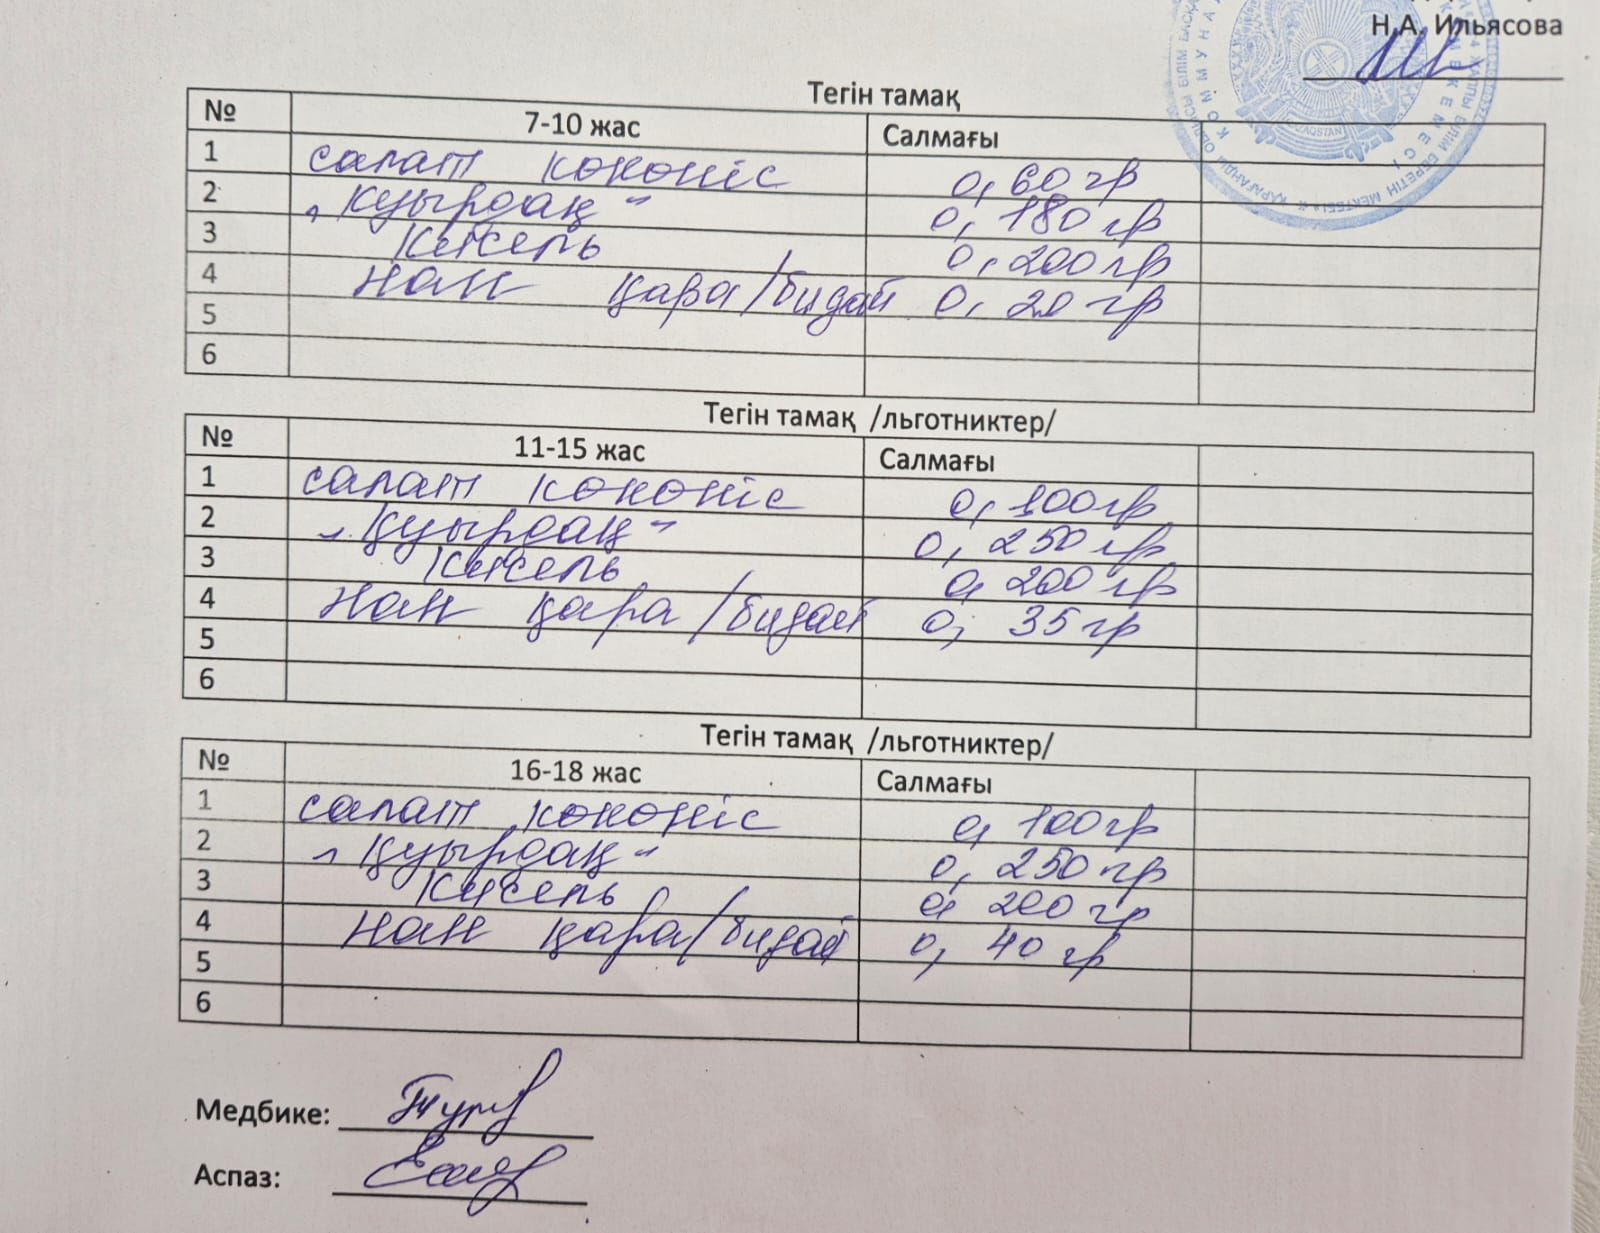 Н.А. Ильясова
Тегін тамақ
№ 7-10 жас Салмағы
1 салат көкөніс 0,60 гр
2 "Қуырдақ" 0,180 гр
3 Кисель 0,200 гр
4 Нан қара/бидай 0,20 гр
5
6
Тегін тамақ /льготниктер/
№ 11-15 жас Салмағы
1 салат көкөніс 0,100 гр
2 "Қуырдақ" 0,250 гр
3 Кисель 0,200 гр
4 Нан қара/бидай 0,35 гр
5
6
Тегін тамақ /льготниктер/
№ 16-18 жас Салмағы
1 салат көкөніс 0,100 гр
2 "Қуырдақ" 0,250 гр
3 Кисель 0,200 гр
4 Нан қара/бидай 0,40 гр
5
6
Медбике:
Аспаз: